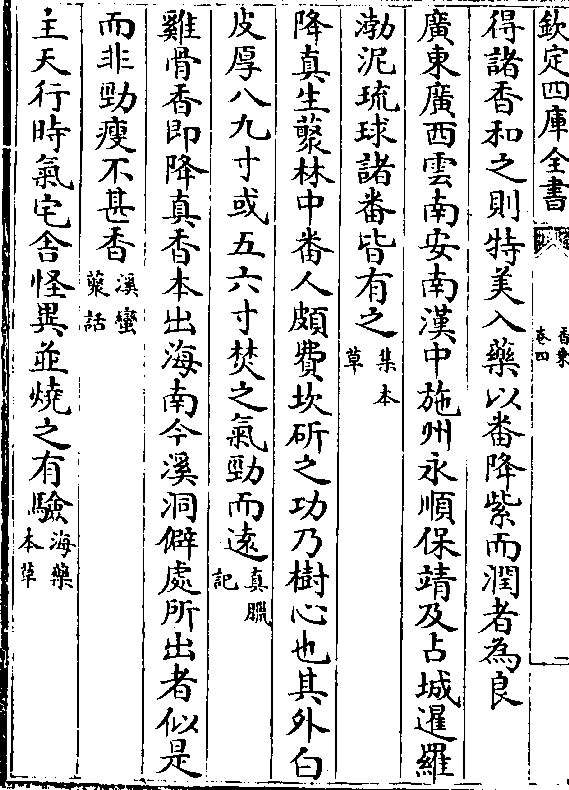 欽定四庫全書
香乘
卷四
得諸香和之則特美入藥以番降紫而潤者為良
廣東廣西雲南安南漢中施州永順保靖及占城暹羅
渤泥琉球諸番皆有之集本草
降真生藂林中番人頗費坎斫之功乃樹心也其外白
皮厚八九寸或五六寸焚之氣勁而逺真臘記
雞骨香即降真香本出海南今溪洞僻處所出者似是
而非勁瘦不甚香溪蠻藂話
主天行時氣宅舍怪異並燒之有驗海藥本草